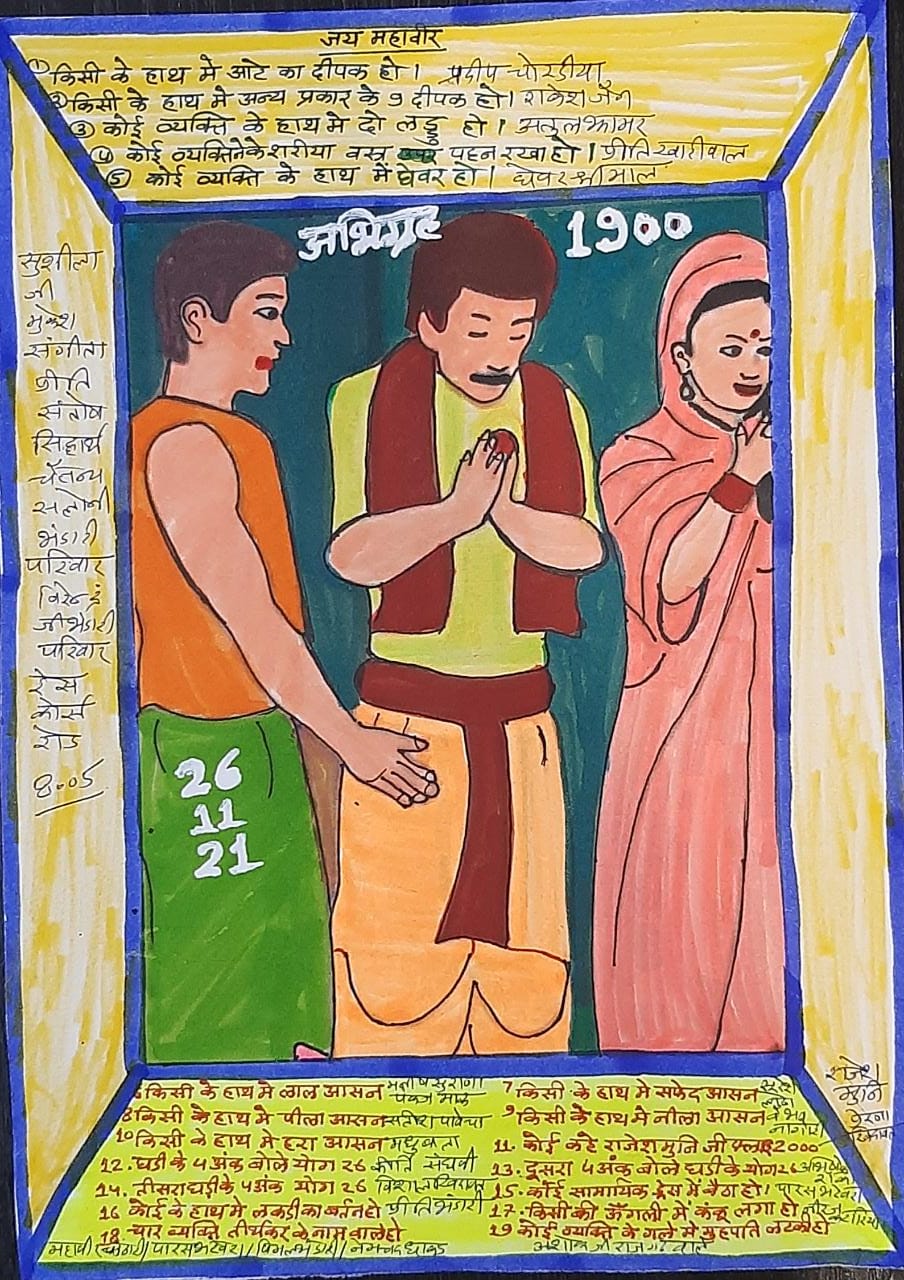 जय महावीर
① किसी के हाथ मे आटे का दीपक हो। प्रदीप चोरडीया
② किसी के हाथ मे अन्य प्रकार के 9 दीपक हो। राकेश जैन
③ कोई व्यक्ति के हाथ मे दो लड्डु हो। अतुल झामर
④ कोई व्यक्तिने केशरीया वस्त्र पहन रखा हो। प्रीति खारीवाल
⑤ कोई व्यक्ति के हाथ में घेवर हो। घेवर श्रीमाल
अभिग्रह 1900
सुशीला
जी
मुकेश
संगीता
प्रीति
संतोष
सिद्धार्थ
चैतन्य
सलोनी
भंडारी
परिवार
विरेन्द्र
जी भंडारी
परिवार
रेस
कोर्स
रोड
8.05
26
11
21
राजेश
मुनि
6 किसी के हाथ मे लाल आसन मनीष सुराणा
7 किसी के हाथ मे सफेद आसन
8 किसी के हाथ मे पीला आसन
9 किसी के हाथ मे नीला आसन
10 किसी के हाथ मे हरा आसन
11. कोई कहे राजेश मुनि जी 2000
12. घडी के 4 अंक बोले योग 26 कीर्ति संघवी
13. दूसरा 4 अंक बोले घडी के योग 26
14. तीसरा घडी के 4 अंक योग 26
15. कोई सामायिक ड्रेस में बैठा हो। पारस भटेवरा
16 कोई के हाथ मे लकडी का बर्तन हो प्रीति भंडारी
17. किसी की ऊँगली में कंकू लगा हो
18. चार व्यक्ति तीर्थंकर के नाम वाले हो
19 कोई व्यक्ति के गले मे मुहपति लटकी हो